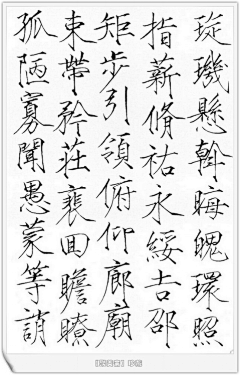 琁璣懸斡晦魄環照
指薪脩祐永綏吉邵
矩步引領俯仰廊廟
束帶矜莊裴回瞻瞭
孤陋寡聞愚蒙等誚